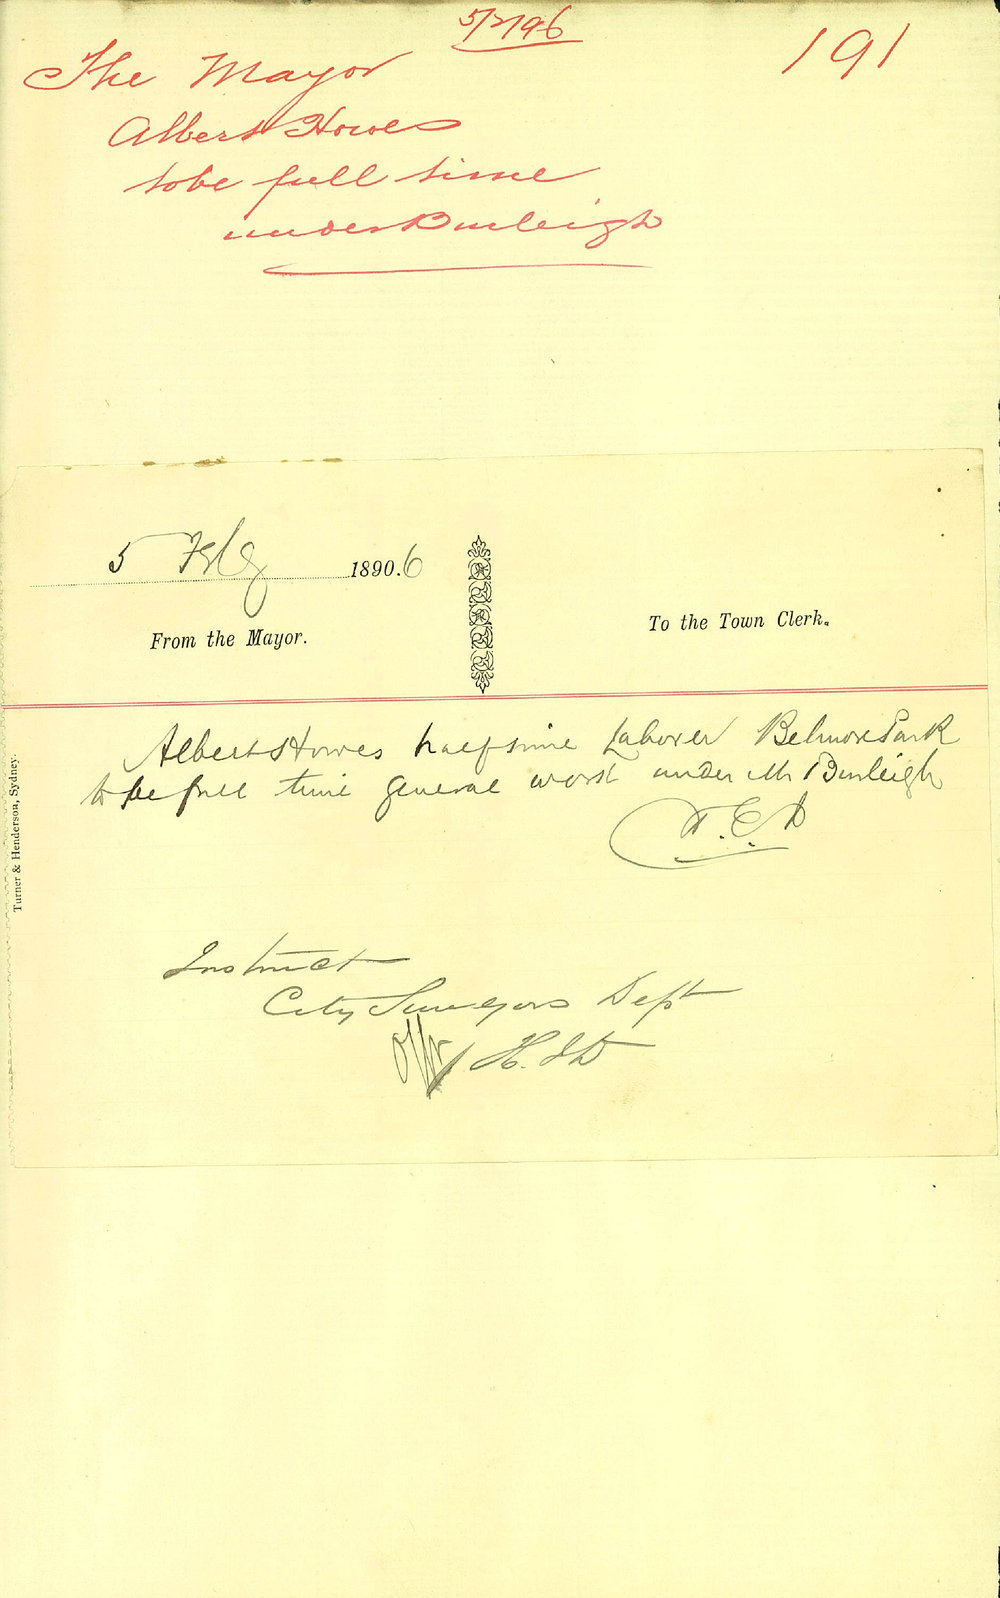 5/2/96
191
The Mayor
Albert Howes
to be full time
under Burleigh
5 Feby 1890.6
From the Mayor.
To the Town Clerk.
Albert Howes half time Laborer Belmore Park
to be full time general work under Mr Burleigh
Turner & Henderson, Sydney.
Instruct
City Surveyors Dept